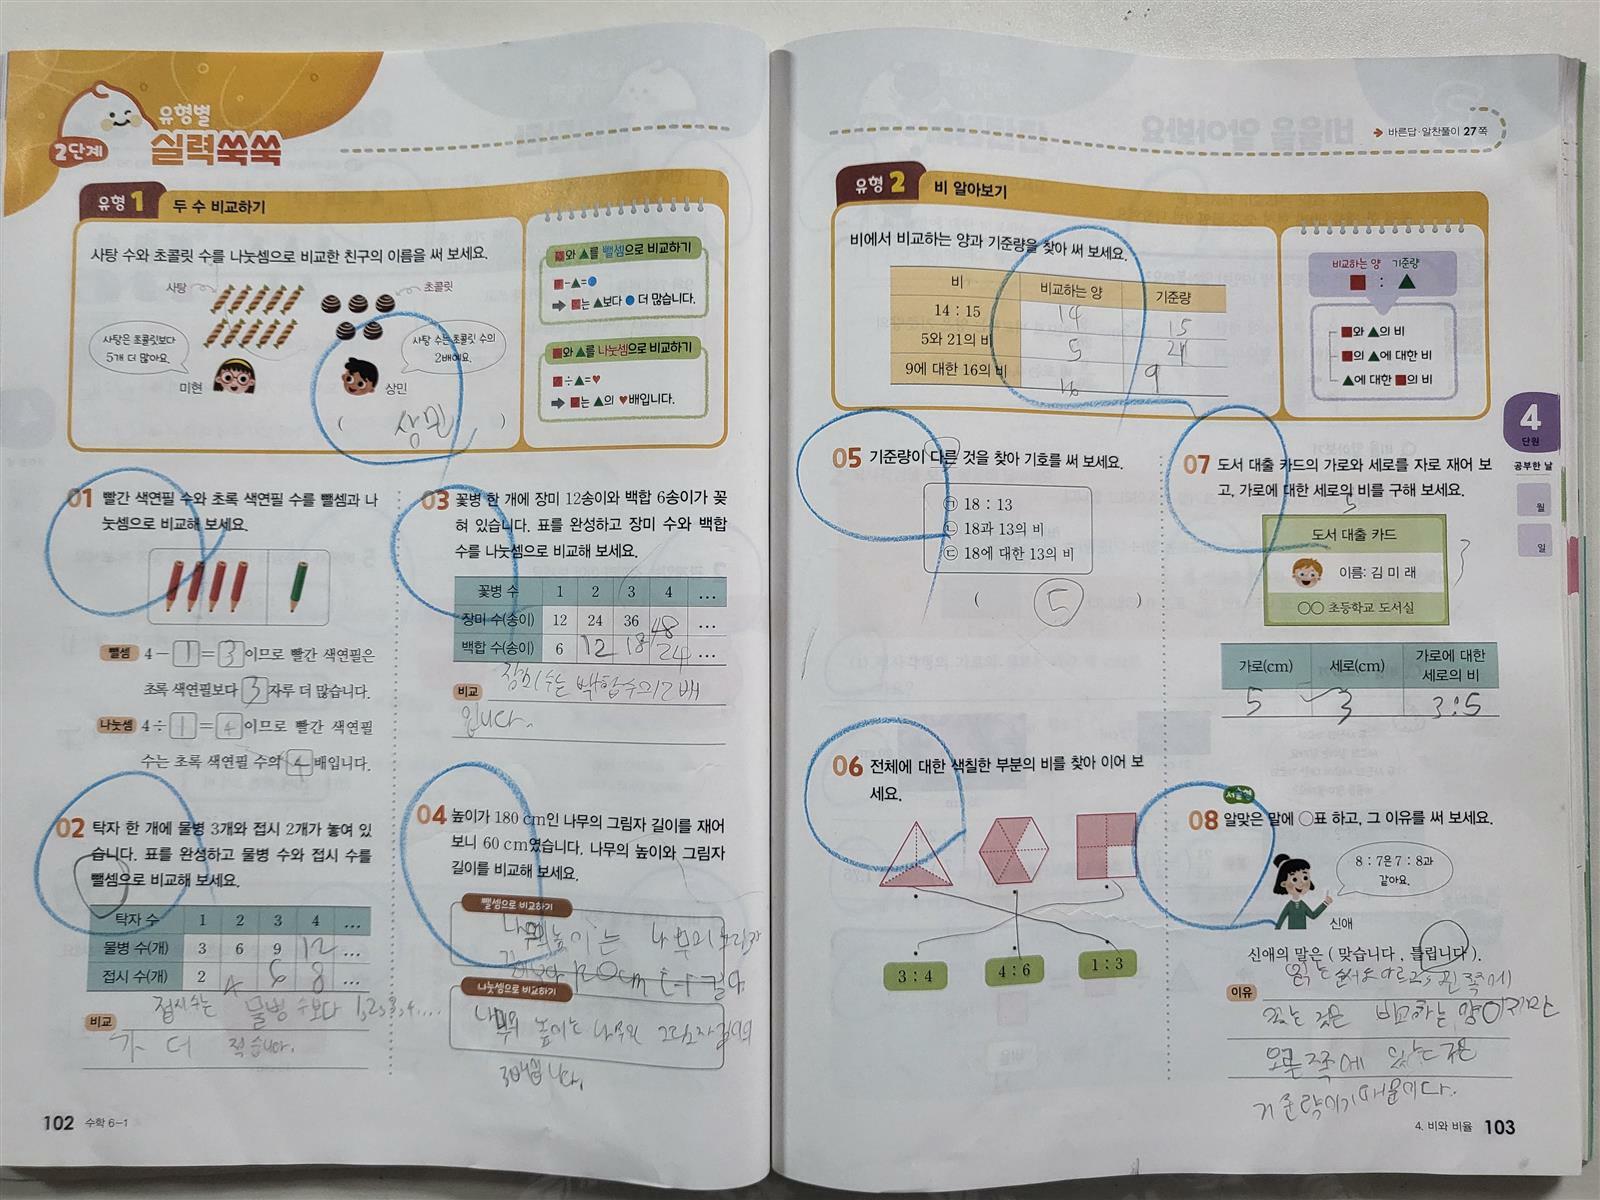 2단계
유형별
실력쑥쑥
유형 1 두 수 비교하기
사탕 수와 초콜릿 수를 나눗셈으로 비교한 친구의 이름을 써 보세요.
사탕
초콜릿
사탕은 초콜릿보다
5개 더 많아요.
미현
사탕 수는 초콜릿 수의
2배예요.
상민
( 상민 )
■와 ▲를 뺄셈으로 비교하기
■-▲=●
➡ ■는 ▲보다 ● 더 많습니다.
■와 ▲를 나눗셈으로 비교하기
■÷▲=♥
➡ ■는 ▲의 ♥배입니다.
01 빨간 색연필 수와 초록 색연필 수를 뺄셈과 나
눗셈으로 비교해 보세요.
뺄셈 4-1=3이므로 빨간 색연필은
초록 색연필보다 3자루 더 많습니다.
나눗셈 4÷1=4이므로 빨간 색연필
수는 초록 색연필 수의 4배입니다.
02 탁자 한 개에 물병 3개와 접시 2개가 놓여 있
습니다. 표를 완성하고 물병 수와 접시 수를
뺄셈으로 비교해 보세요.
탁자 수 1 2 3 4 …
물병 수(개) 3 6 9 12 …
접시 수(개) 2 4 6 8 …
접시 수는 물병 수보다 1,2,3,4....
비교
가 더 적습니다.
03 꽃병 한 개에 장미 12송이와 백합 6송이가 꽃
혀 있습니다. 표를 완성하고 장미 수와 백합
수를 나눗셈으로 비교해 보세요.
꽃병 수 1 2 3 4 …
장미 수(송이) 12 24 36 48 …
백합 수(송이) 6 12 18 24 …
장미 수는 백합 수의 2배
비교
입니다.
04 높이가 180 cm인 나무의 그림자 길이를 재어
보니 60 cm였습니다. 나무의 높이와 그림자
길이를 비교해 보세요.
뺄셈으로 비교하기
높이는 나무의 그림자
120cm 더 길다
나눗셈으로 비교하기
나무의 높이는 나무의 그림자 길이의
3배입니다.
102 수학 6-1
바른답·알찬풀이 27쪽
유형 2 비 알아보기
비에서 비교하는 양과 기준량을 찾아 써 보세요.
비 비교하는 양 기준량
14 : 15 14 15
5와 21의 비 5 21
9에 대한 16의 비 16 9
비교하는 양 기준량
■ : ▲
■와 ▲의 비
■의 ▲에 대한 비
▲에 대한 ■의 비
4
단원
공부한 날
월
일
05 기준량이 다른 것을 찾아 기호를 써 보세요.
㉠ 18 : 13
㉡ 18과 13의 비
㉢ 18에 대한 13의 비
( )
06 전체에 대한 색칠한 부분의 비를 찾아 이어 보
세요.
3 : 4
4 : 6
1 : 3
07 도서 대출 카드의 가로와 세로를 자로 재어 보
고, 가로에 대한 세로의 비를 구해 보세요.
5
도서 대출 카드
이름: 김 미 래
○○ 초등학교 도서실
3
가로(cm) 세로(cm) 가로에 대한
세로의 비
5 3 3:5
서술형
08 알맞은 말에 ○표 하고, 그 이유를 써 보세요.
8 : 7은 7 : 8과
같아요.
신애
신애의 말은 ( 맞습니다 , 틀립니다 ).
이유
읽는 순서도 다르고 왼쪽에
있는 것은 비교하는 양이지만
오른쪽에 있는 것은
기준량이기 때문이다.
4. 비와 비율 103